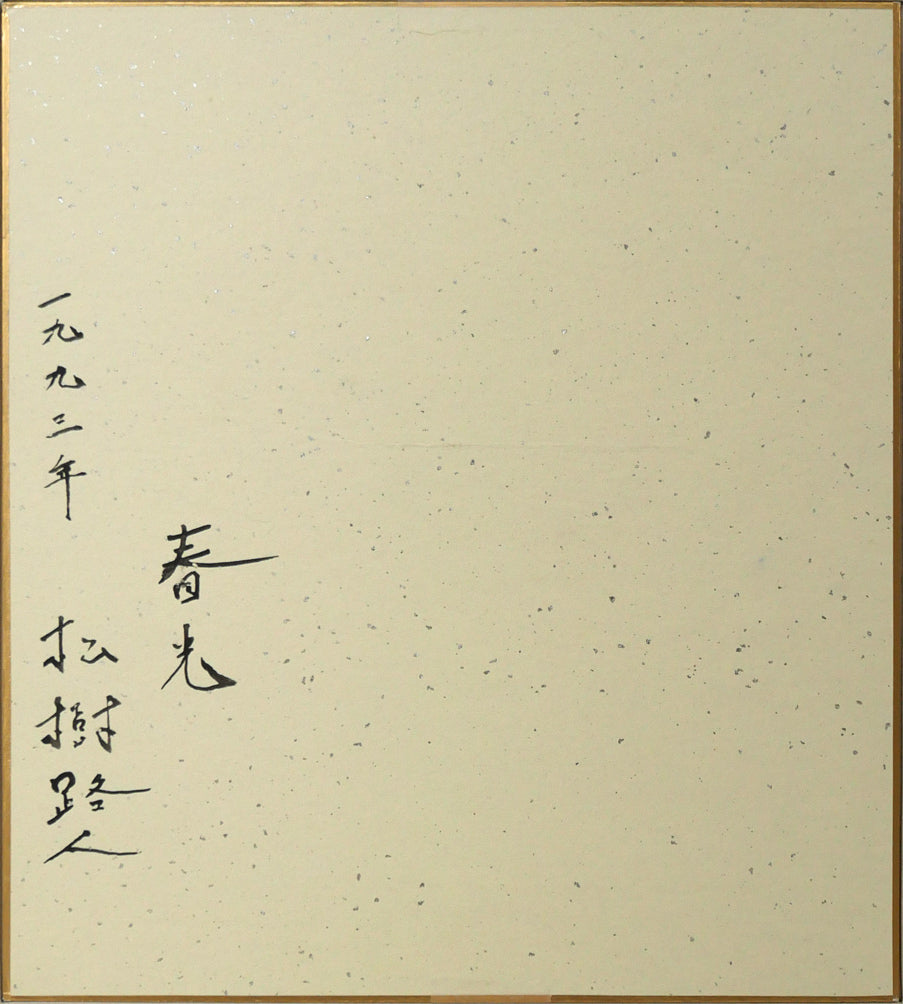 春光
一九九三年 松樹路人